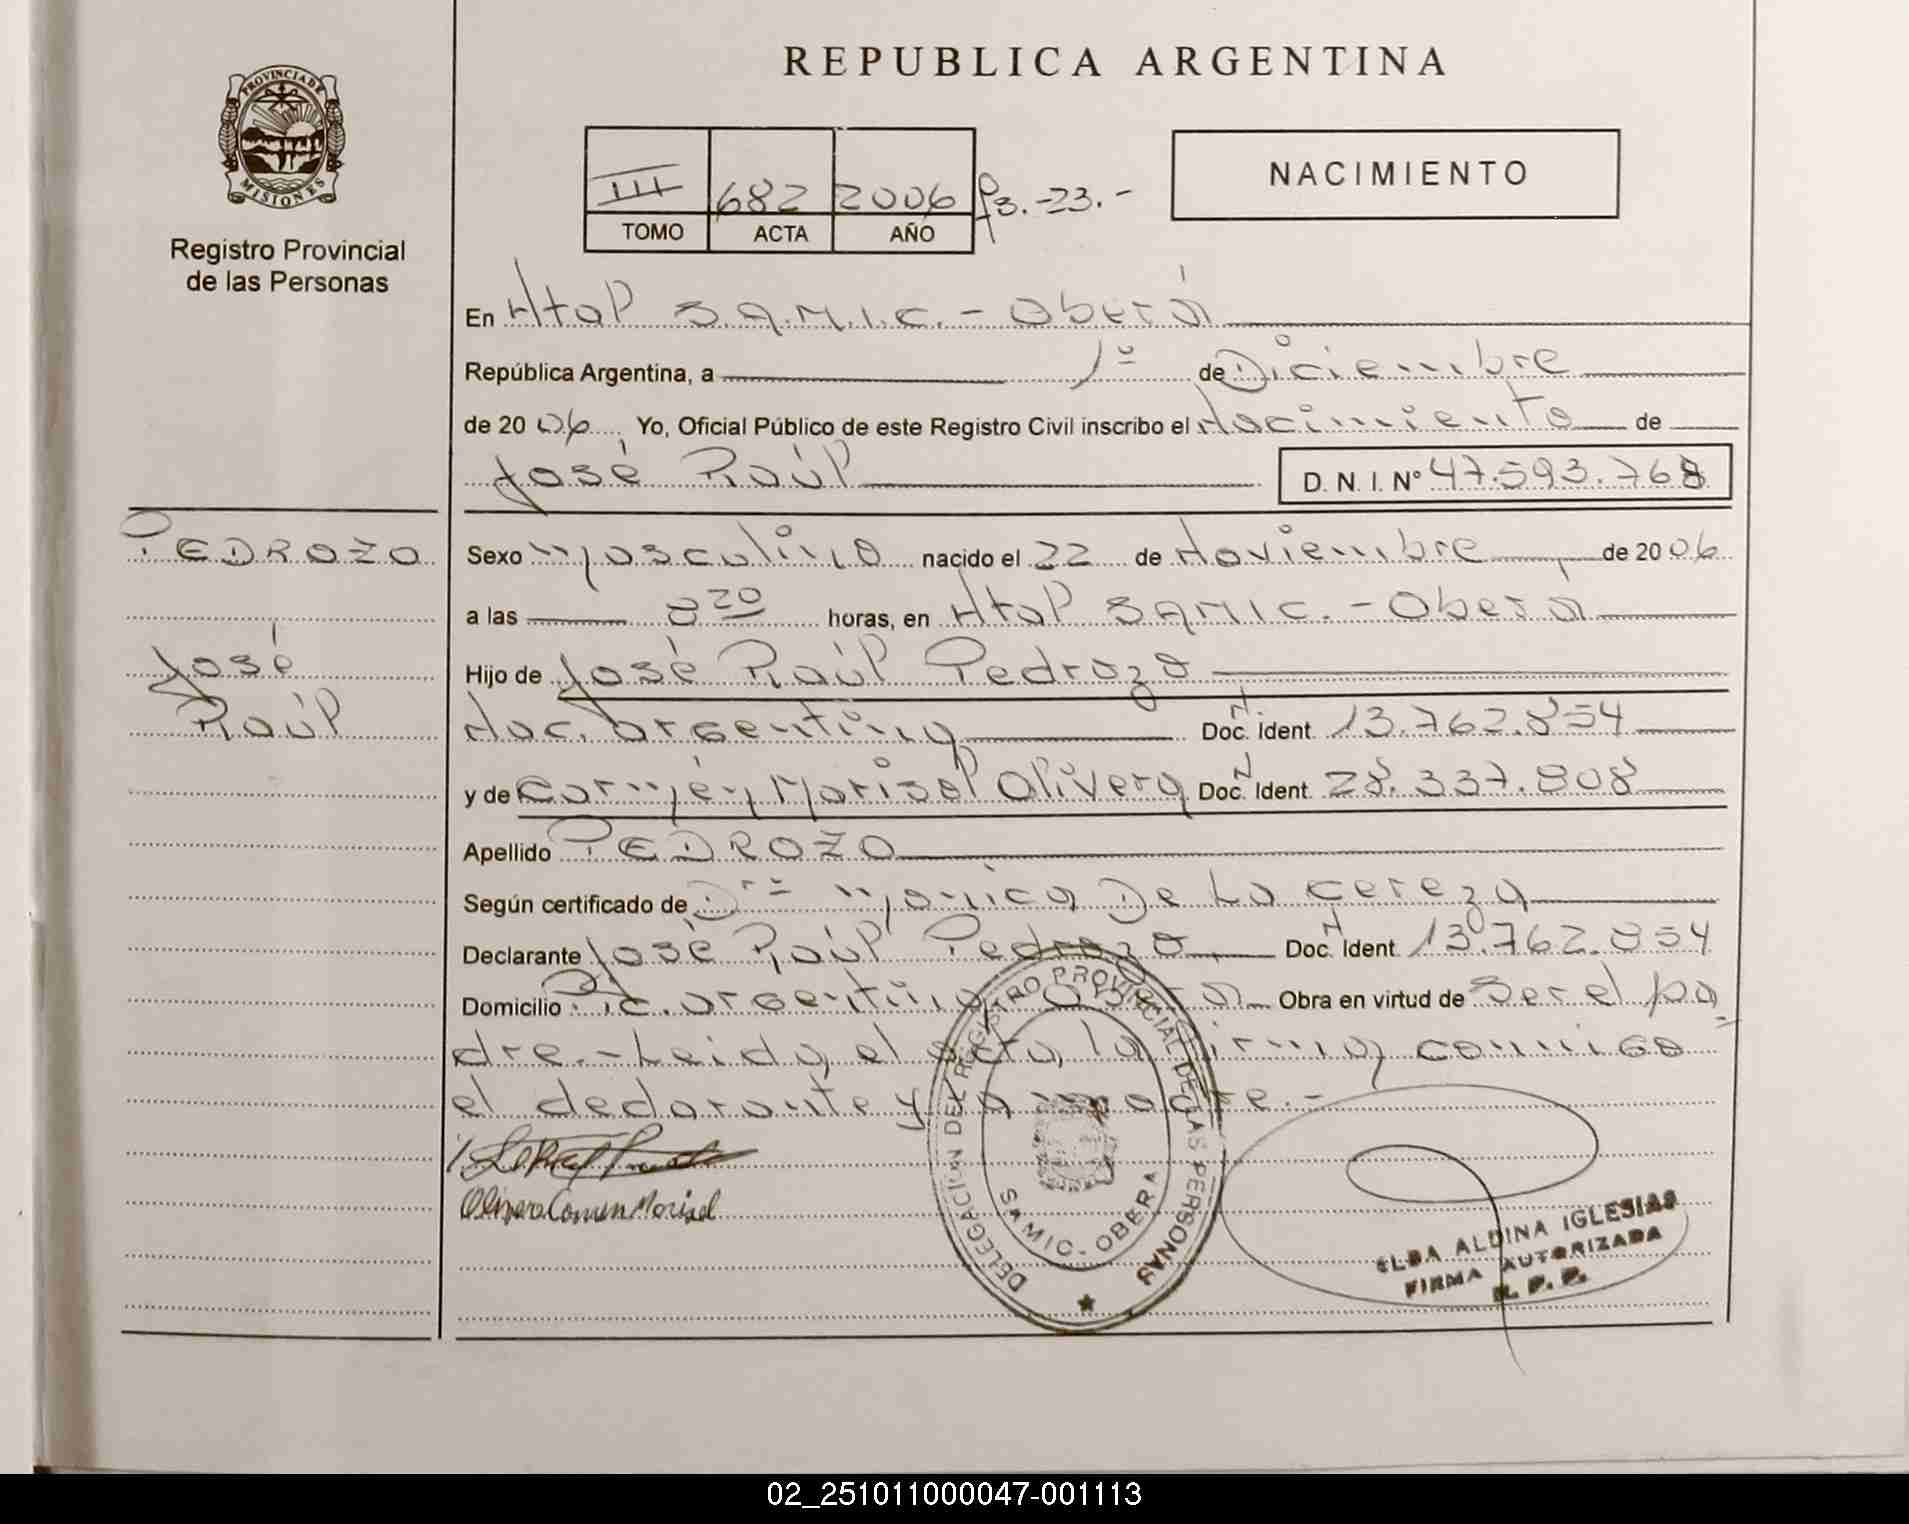 REPUBLICA ARGENTINA
PROVINCIA DE
MISIONES
Registro Provincial
de las Personas
III 682 2006 fs.-23.-
TOMO ACTA AÑO
NACIMIENTO
En Htal S.A.M.I.C.- Oberá
República Argentina, a 1º de Diciembre
de 2006 Yo, Oficial Público de este Registro Civil inscribo el Nacimiento de
José Raúl D. N. I. Nº 47.593.768
PEDROZO
José
Raúl
Sexo masculino nacido el 22 de Noviembre de 2006
a las 8 20 horas, en Htal SAMIC.- Oberá
Hijo de José Raúl Pedrozo
Nac. argentina Doc. N. Ident. 13.762.854
y de Carmén Marisol Olivera Doc. N Ident. 28.337.808
Apellido PEDROZO
Según certificado de Dra Monica De La Cereza
Declarante José Raúl Pedrozo Doc. N Ident. 13.762.854
Domicilio Pic. argentina Oberá Obra en virtud de Ser el pa
dre.-Leida el acta, la firman conmigo
el declarante y la madre.-
Olivera Carmen Marisol
DELEGACION DEL REGISTRO PROVINCIAL DE LAS PERSONAS
SAMIC - OBERA
ELBA ALDINA IGLESIAS
FIRMA AUTORIZADA
R. P. P.
02_251011000047-001113